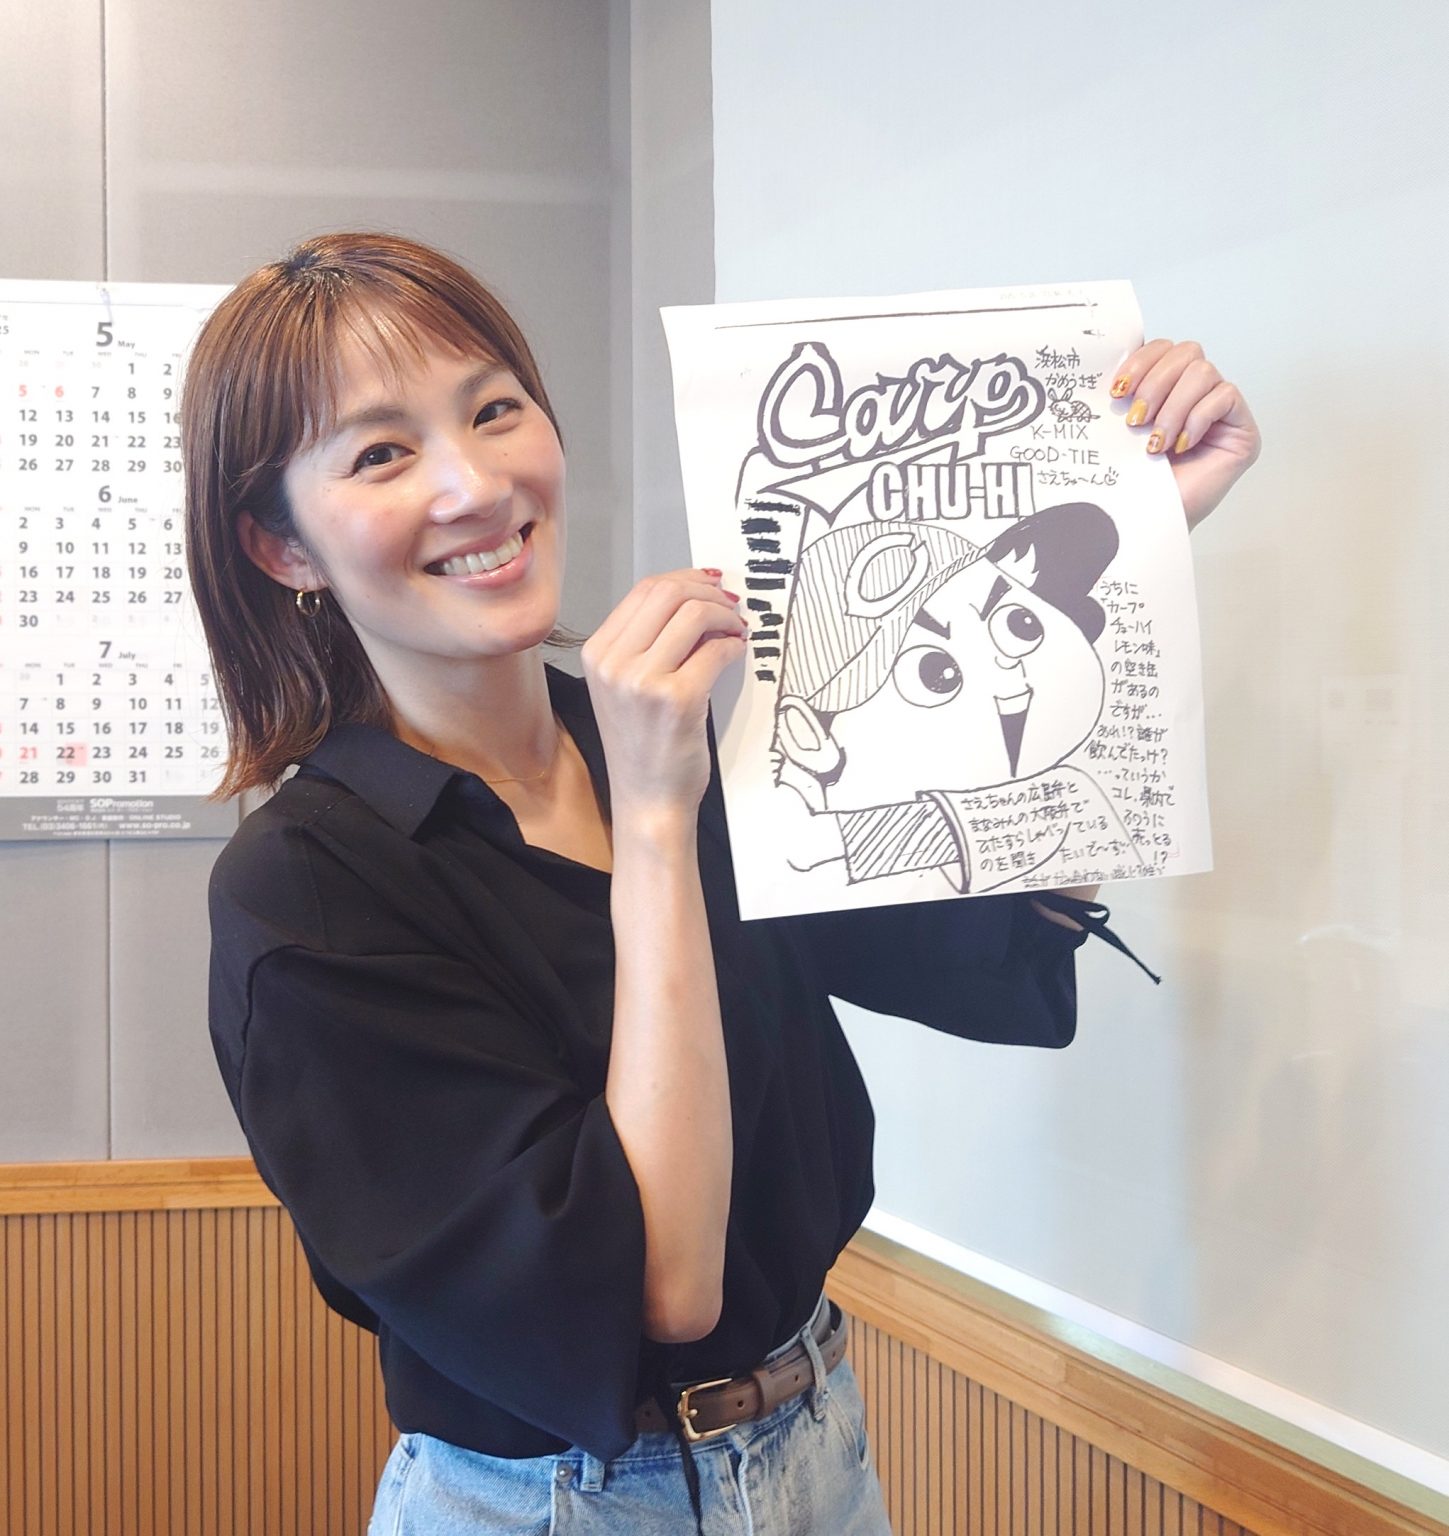 5 May
MON TUE WED THU FRI
1 2
5 6 7 8 9
12 13 14 15 16
19 20 21 22 23
26 27 28 29 30
6 June
2 3 4 5 6
9 10 11 12 13
16 17 18 19 20
23 24 25 26 27
30
7 July
MON TUE WED THU FRI
1 2 3 4 5
7 8 9 10 11 12
14 15 16 17 18 19
21 22 23 24 25 26
28 29 30 31
SOPromotion
アナウンサー・MC・DJ
TEL.(03)3408-1661㈹ www.so-pro.co.jp
Carp
CHU-HI
浜松市
かめうさぎ
K-MIX
GOOD-TIE
さえちゅ〜ん
C
うちに
「カープ
チューハイ
レモン味」
の空き缶
があるの
ですが…
あれ!?誰が
飲んでたっけ?
…っていうか
コレ、県内で
ふつうに
売っとる
!?
さえちゅんの広島弁と
まなみんの大阪弁で
ひたすらしゃべっている
のを聞き たいで〜す!